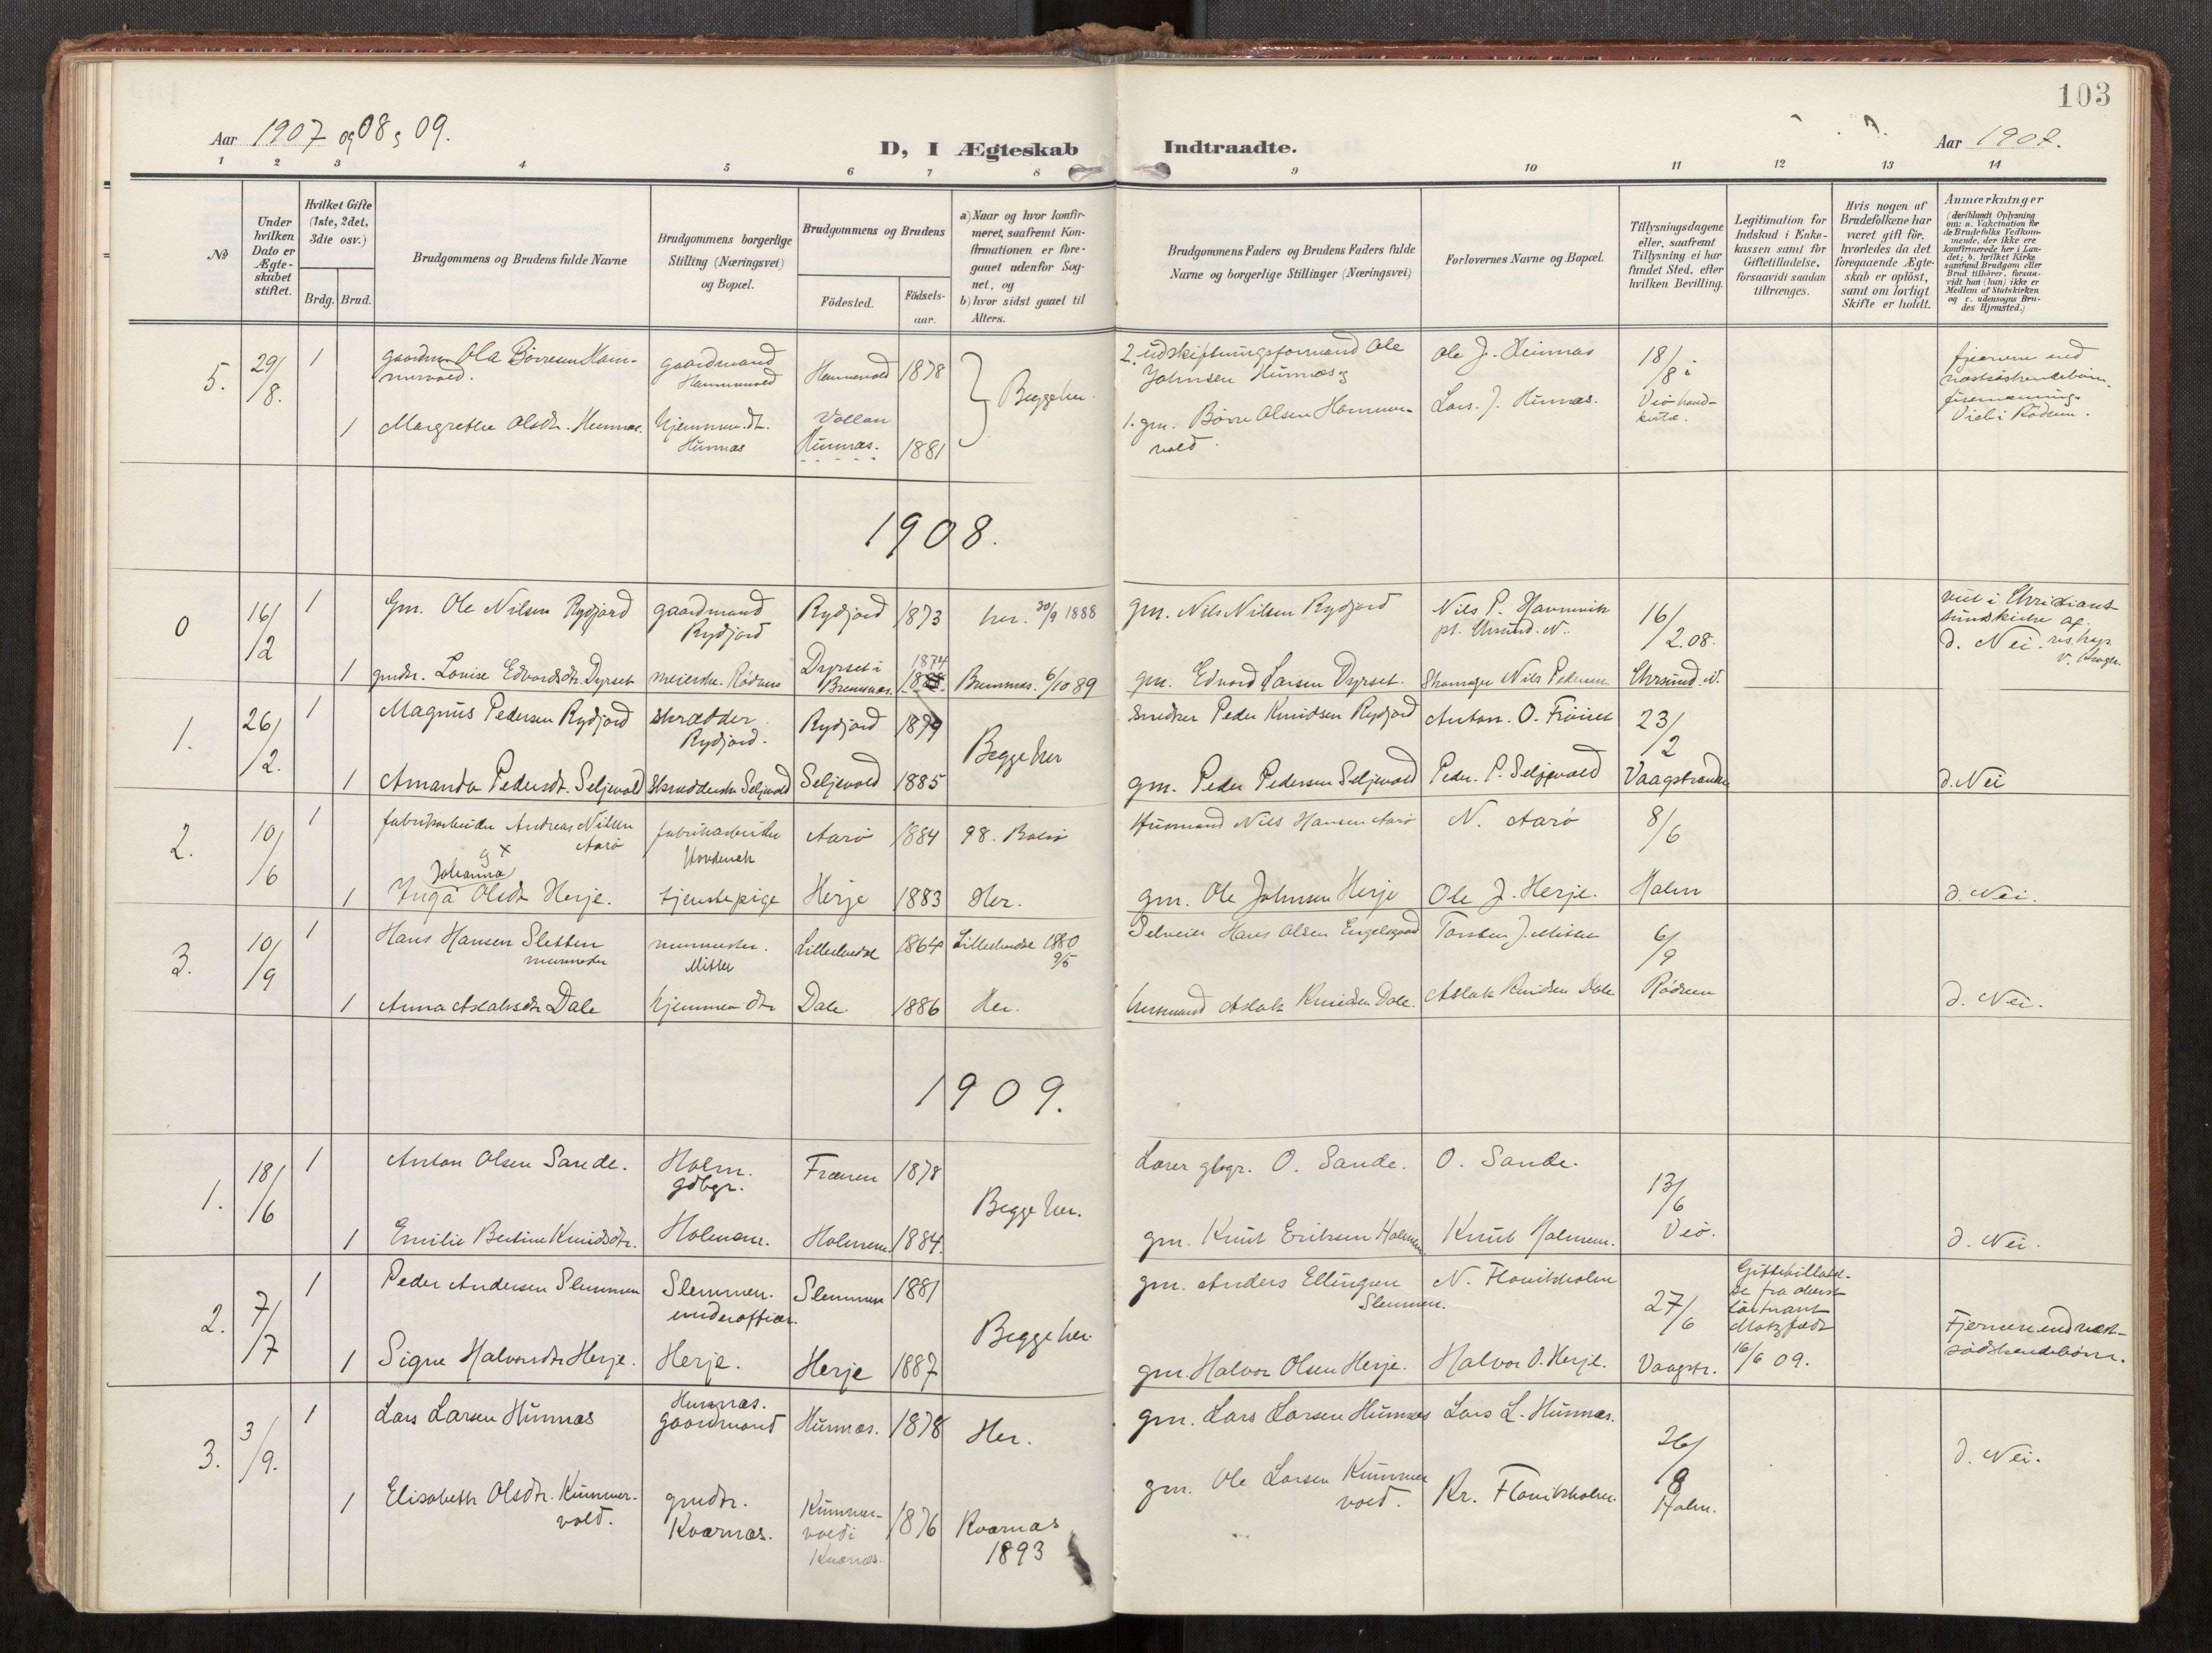 103
Aar 1907 og 08 og 09.
D, I Ægteskab Indtraadte.
Aar 1907.
1 2 3 4 5 6 7 8 9 10 11 12 13 14
No
Under hvilken Dato er Ægte-skabet stiftet.
Hvilket Gifte (1ste, 2det, 3die osv.)
Brdg. Brud.
Brudgommens og Brudens fulde Navne
Brudgommens borgerlige Stilling (Næringsvei) og Bopæl.
Brudgommens og Brudens
Födested.
Födsels-aar.
a) Naar og hvor konfir-meret, saafremt Kon-firmationen er fore-gaaet udenfor Sog-net, og
b) hvor sidst gaaet til Alters.
Brudgommens Faders og Brudens Faders fulde Navne og borgerlige Stillinger (Næringsvei)
Forlovernes Navne og Bopæl.
Tillysningsdagene eller, saafremt Tillysning ei har fundet Sted, efter hvilken Bevilling.
Legitimation for Indskud i Enke-kassen samt for Giftetilladelse, forsaavidt saadan tiltrænges.
Hvis nogen af Brudefolkene har været gift för, hvorledes da det foregaaende Ægte-skab er oplöst, samt om lovligt Skifte er holdt.
Anmærkninger
(deriblandt Oplysning om: a. Vakcination for de Brudefolks Vedkom-mende, der ikke ere konfirmerede her i Lan-det; b. hvilket Kirke-samfund Brudgom eller Brud tilhörer, forsaa-vidt han (hun) ikke er Medlem af Statskirken og c. udensogns Bru-des Hjemsted.)
5. 29/8. 1 gaardm. Ola Børresen Ham-mervold. gaardmand Hammervold Hammervold 1878 Begge her.
2. udskiftningsformand Ole Johnsen Hunnæs og Ole J. Hunnæs 18/8 i
fjernere end næstsøskendebørn
1 Margrethe Olsdt. Hunnæs. hjemmev. dt. Hunnæs Vollan Hunnæs. 1881
1. gm. Børre Olsen Hammer-vold. Lars. J. Hunnæs. Veø
Viet i Rødven.
1908.
0 16/2 1 Gm. Ole Nilsen Rydjord gaardmand Rydjord Rydjord 1873 her. 30/9 1888
gm. Nils Nilsen Rydjord Nils P. Havnvik pt. Chrsund. N. 16/2.08.
viet i Christiansunds kirke af
1 gmdtr. Louise Edvardsdtr. Dyrset meierske. Rødven Dyrset i Bremnæs. 1874 Bremnæs. 6/10 89
gm. Edvard Larsen Dyrset. Skomager Nils Pedersen Chrsund. N.
d. Nei.
1. 26/2. 1 Magnus Pedersen Rydjord Skrædder Rydjord. Rydjord 1879 Begge her
Snedker Peder Knudsen Rydjord Anton. O. Frøiset 23/2
1 Amanda Pedersdt. Seljevold Skrædderske Seljevold Seljevold 1885
gm. Peder Pedersen Seljevold Peder. P. Seljevold Vaagstranden d. Nei
2. 10/6 1 fabrikarbeider Andreas Nilsen Aarø fabrikarbeider Hovdenak Aarø 1884 98. Bolsø
Husmand Nils Hansen Aarø N. Aarø 8/6
Johanna
1 Inga Olsdt Herje. tjenstepige Herje 1883 Her.
gm. Ole Johnsen Herje Ole J. Herje. Holm d. Nei.
3. 10/9 1 Hans Hansen Sletten murmester murmester. Mittet Lillelvedal 1864 Lillelvedal 1880 9/5
Selveier Hans Olsen Engelsgaard Torsten J. Mittet 6/9
1 Anna Aslaksdtr Dale hjemmev dtr Dale. 1886 Her.
husmand Aslak Knudsen Dale. Aslak Knudsen Dale Rødven d. Nei.
1909.
1. 18/6 1 Anton Olsen Sande. Holm. gdbgr. Frænen 1878 Begge her.
Lærer gbgr. O. Sande. O. Sande. 13/6
1 Emilie Bertine Knudsdtr. Holmem. Holmem. 1884.
gm. Knut Eriksen Holmem Knut Holmem. Veø. d. Nei.
2. 7/7 1 Peder Andersen Slemmen Slemmen. underofficer. Slemmen 1881 Begge her
gm. Anders Ellingsen Slemmen. N. Flovikholm 27/6
Giftetilladel-se fra oberst-løitnant Motzfeldt 16/6 09.
Fjernere end næst-södskendebörn.
1 Signe Halvorsdtr Herje. Herje. Herje 1887
gm. Halvor Olsen Herje. Halvor O. Herje. Vaagstr.
3. 3/9. 1 Lars Larsen Hunnæs Hunnæs. gaardmand Hunnæs. 1878 Her.
gm. Lars Larsen Hunnæs Lars L. Hunnæs. 26/8 d. Nei.
1 Elisabeth Olsdtr. Kummer-vold. gmdtr. Kvarnæs. Kummer-vold i Kvarnæs. 1876 Kvarnæs 1893
gm. Ole Larsen Kummer vold. Kr. Flovikholm. Holm.